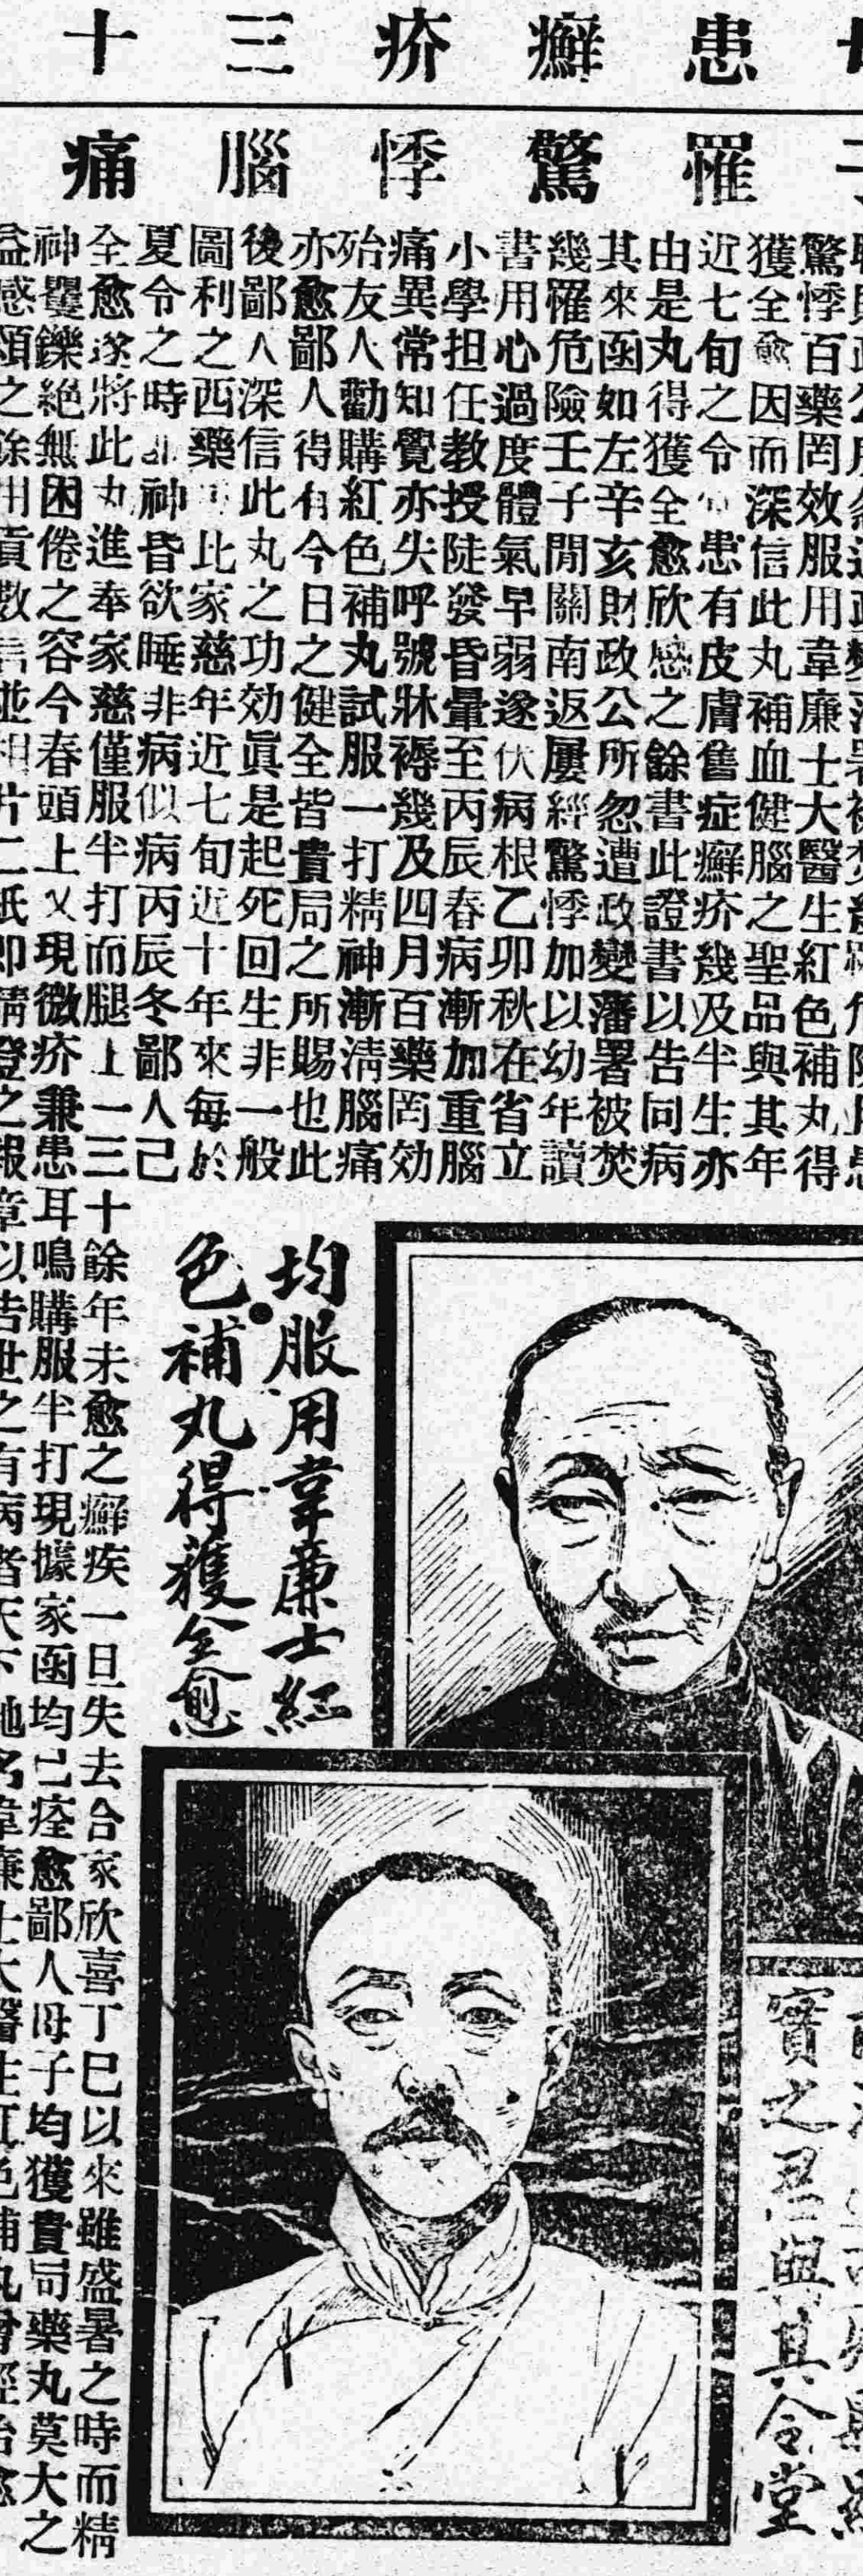 患癬疥三十
罹驚悸腦痛
驚悸百藥罔效服用韋廉士大醫生紅色補丸得
獲全愈因而深信此丸補血健腦之聖品與其年
近七旬之令患有皮膚舊症癬疥幾及半生亦
由是丸得獲全愈欣感之餘書此證書以告同病
其來函如左辛亥財政公所忽遭政變藩署被焚
幾罹危險壬子間關南返屢經驚悸加以幼年讀
書用心過度體氣早弱遂伏病根乙卯秋在省立
小學担任教授陡發昏暈至丙辰春病漸加重腦
痛異常知覺亦失呼號牀褥幾及四月百藥罔効
殆友人勸購紅色補丸試服一打精神漸淸腦痛
亦愈鄙人得有今日之健全皆貴局之所賜也此
後鄙人深信此丸之功効眞是起死回生非一般
圖利之西藥可比家慈年近七旬近十年來每於
夏令之時即神昏欲睡非病似病丙辰冬鄙人己
全愈遂將此丸進奉家慈僅服半打而腿上一三十餘年未愈之癬疾一旦失去合家欣喜丁巳以來雖盛暑之時而精
神矍鑠絕無困倦之容今春頭上又現微疥兼患耳鳴購服半打現據家函均已痊愈鄙人母子均獲貴司藥丸莫大之
益感頌之餘用貢數言並相片二紙即請登之報章以告世之有病者天下馳名韋廉士大醫生紅色補丸曾經治愈
實之君與其令堂
均服用韋廉士紅
色補丸得獲全愈